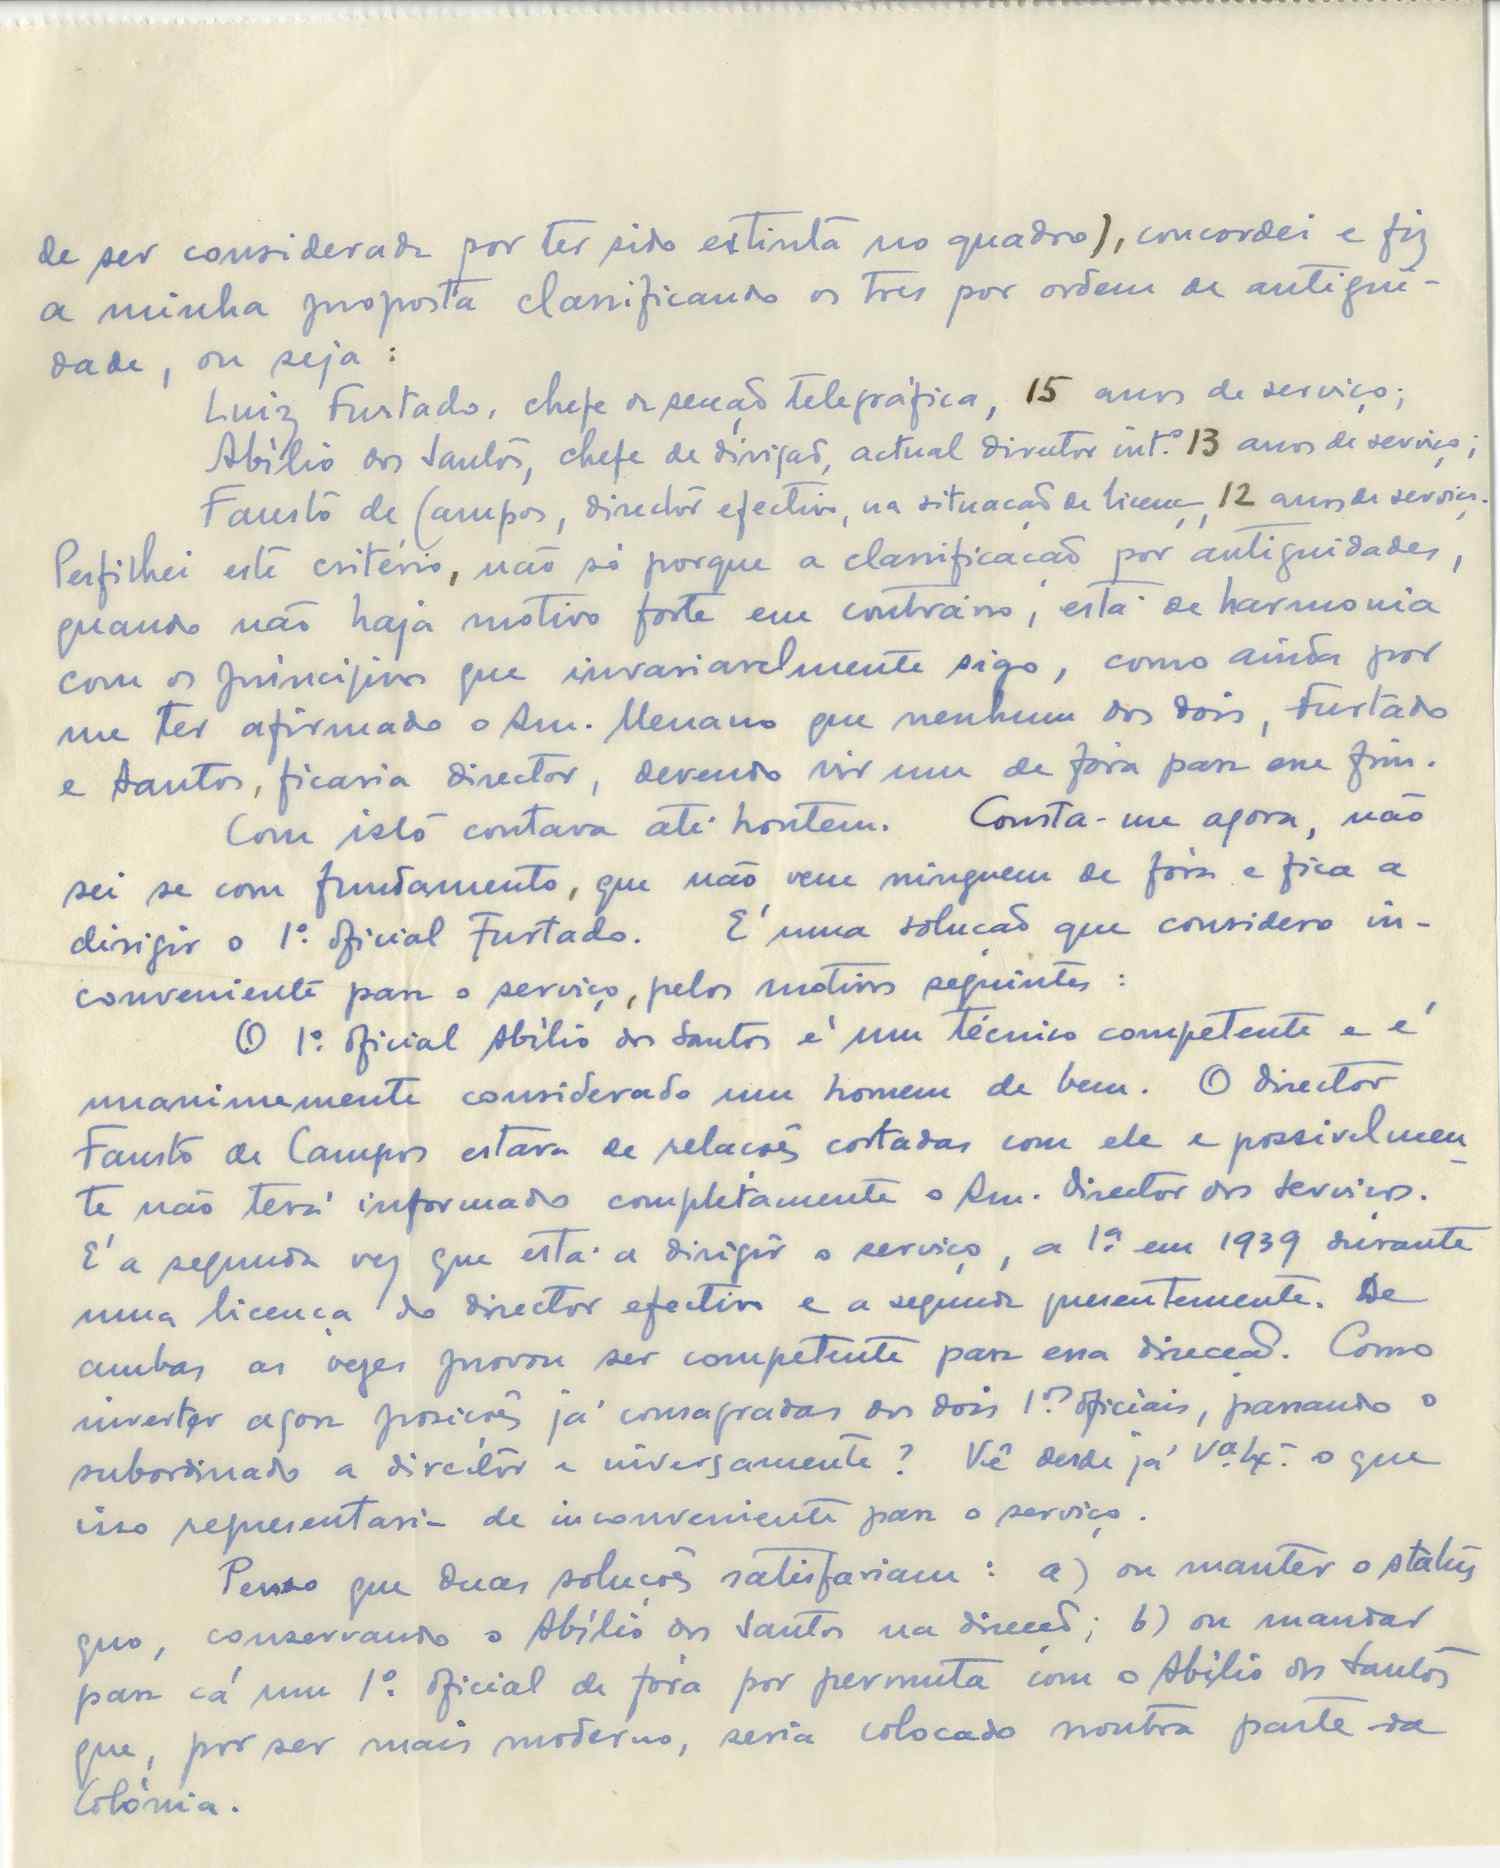 de ser considerada por ter sido extinta no quadro), concordei e fiz
a minha proposta classificando os tres por ordem de antigui-
dade, ou seja:
Luiz Furtado, chefe da secção telegráfica, 15 anos de serviço;
Abílio dos Santos, chefe de divisão, actual director intº. 13 anos de serviço;
Fausto de Campos, director efectivo, na situação de licença, 12 anos de serviço.
Perfilhei este critério, não só porque a classificação por antiguidades,
quando não haja motivo forte em contrário, está de harmonia
com os principios que invariavelmente sigo, como ainda por
me ter afirmado o Snr. Menano que nenhum dos dois, Furtado
e Santos, ficaria director, devendo vir um de fóra para esse fim.
Com isto contava até hontem. Consta-me agora, não
sei se com fundamento, que não vem ninguem de fóra e fica a
dirigir o 1º. oficial Furtado. É uma solução que considero in-
conveniente para o serviço, pelos motivos seguintes:
O 1º. oficial Abílio dos Santos é um técnico competente e é
unanimemente considerado um homem de bem. O director
Fausto de Campos estava de relações cortadas com ele e possivelmen-
te não terá informado completamente o Snr. Director dos Serviços.
É a segunda vez que está a dirigir o serviço, a 1ª. em 1939 durante
uma licença do director efectivo e a segunda presentemente. De
ambas as vezes provou ser competente para essa direcção. Como
inverter agora posições já consagradas dos dois 1os. oficiais, passando o
subordinado a director e inversamente? Vê desde já Vª. Exª. o que
isso representaria de inconveniente para o serviço.
Penso que duas soluções satisfariam: a) ou manter o státús
quo, conservando o Abílio dos Santos na direcção; b) ou mandar
para cá um 1º. oficial de fóra por permuta com o Abílio dos Santos
que, por ser mais moderno, seria colocado noutra parte da
Colónia.